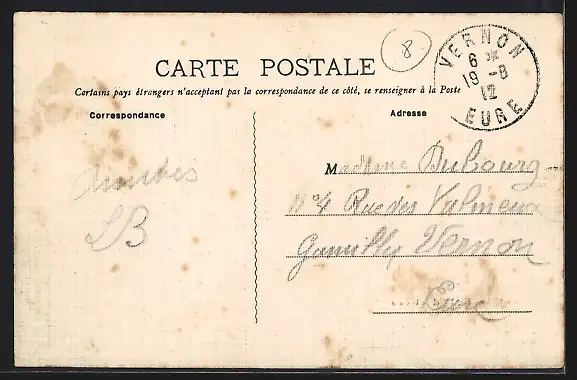 8
VERNON
6 *
19 - 8
12
EURE
CARTE POSTALE
Certains pays étrangers n'acceptant pas la correspondance de ce côté, se renseigner à la Poste
Correspondance
Adresse
LB
Madame Dubourg
N°4 Rue des Valmeux
Vernon
Eure